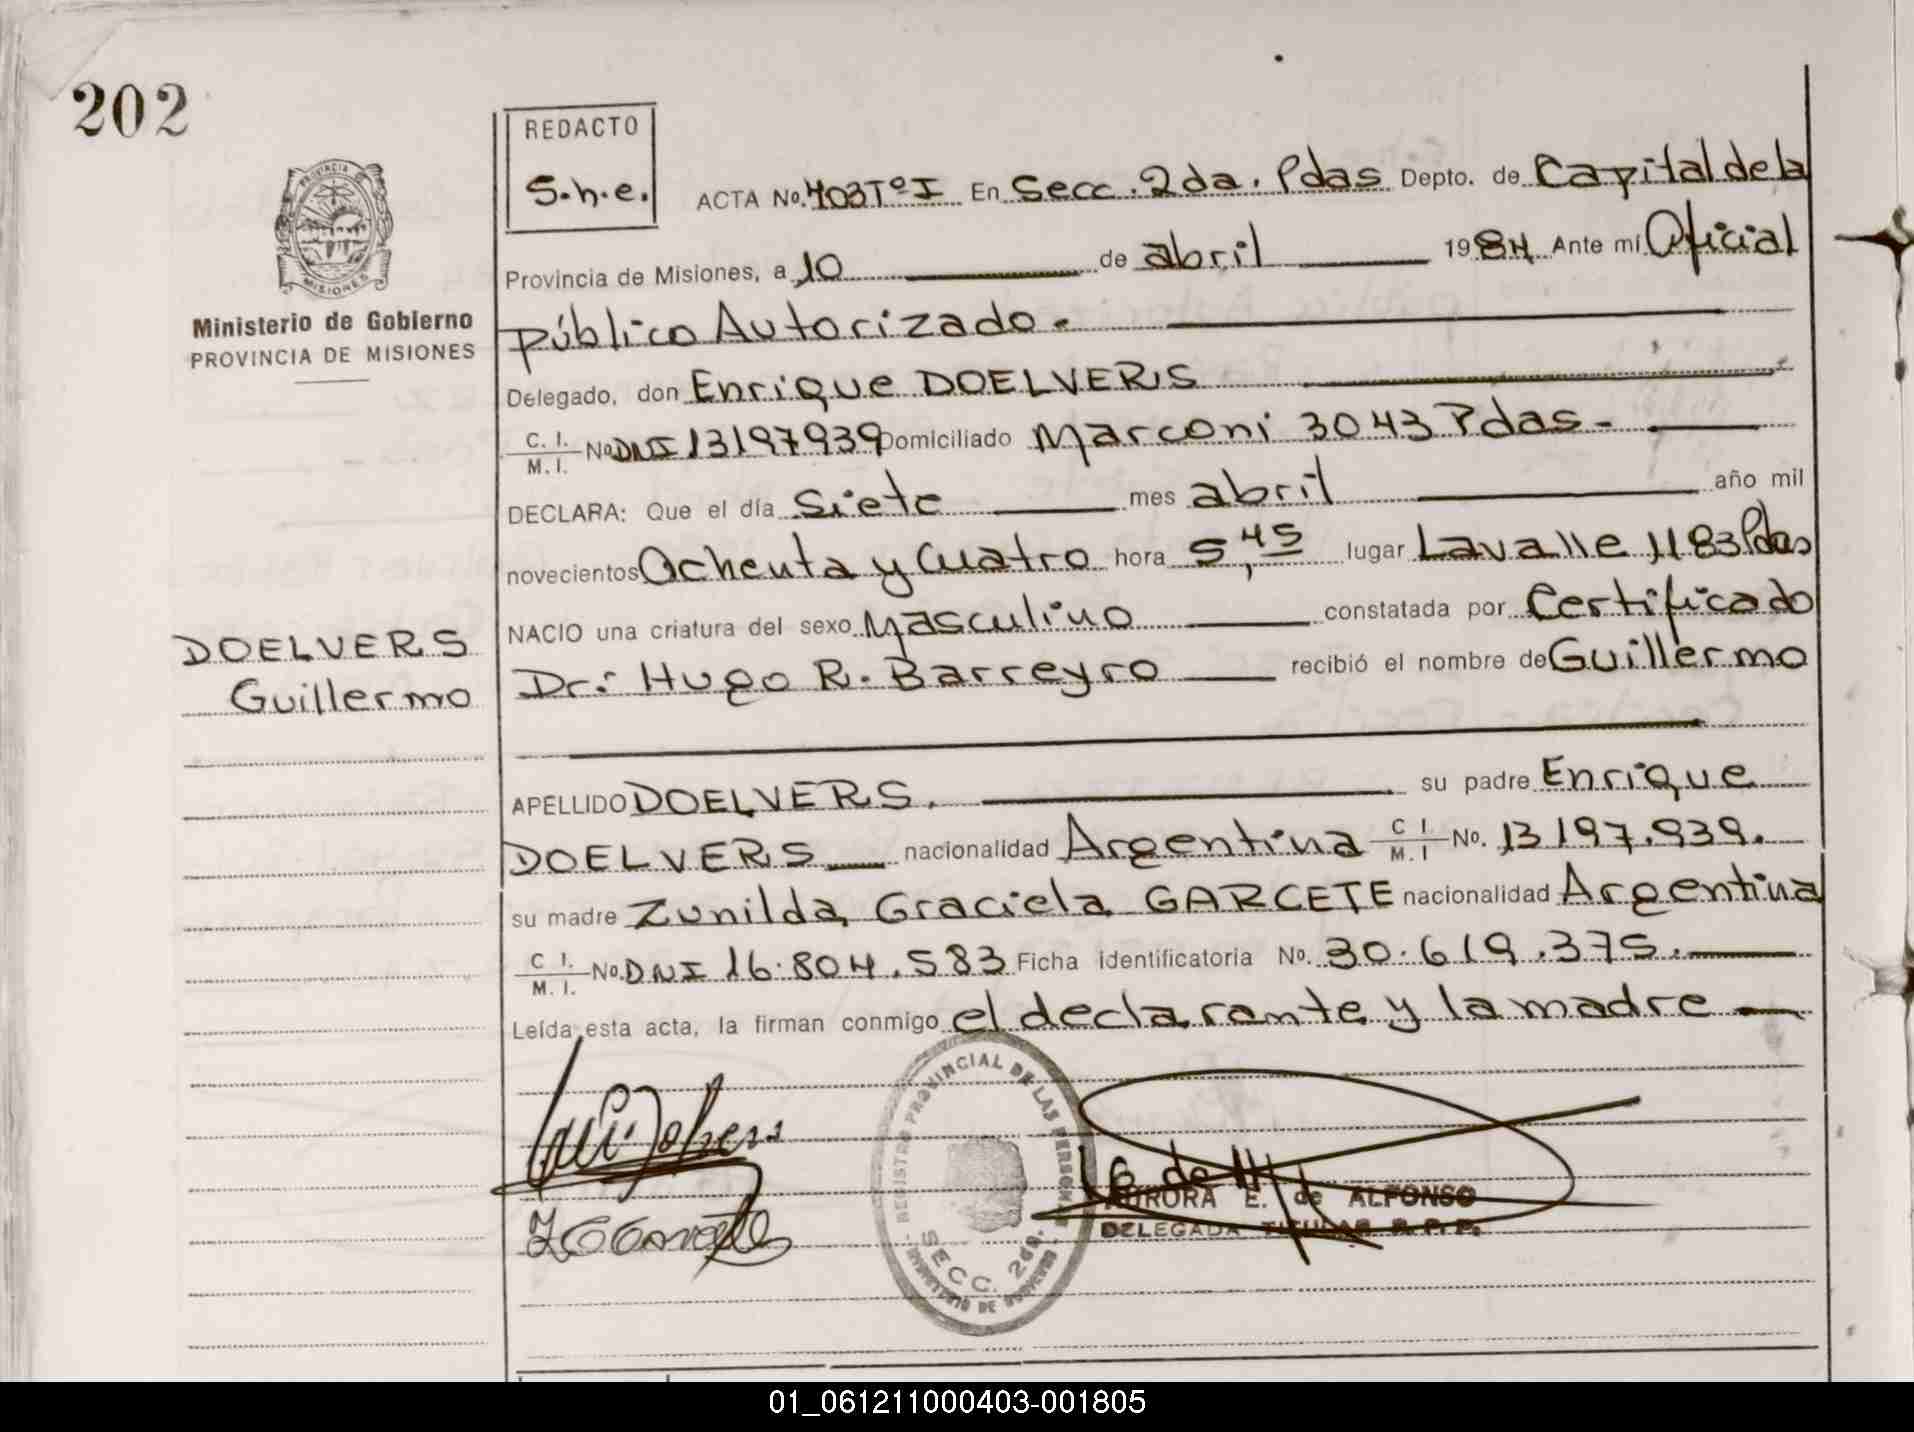 202
REDACTO
S.h.e.
PROVINCIA DE
MISIONES
Ministerio de Gobierno
PROVINCIA DE MISIONES
ACTA No. 403 Tº I En Secc. 2da. Pdas Depto. de Capital de la
Provincia de Misiones, a 10 de abril 1984 Ante mí Oficial
Público Autorizado.
Delegado, don Enrique DOELVERS
C. I. M. I. No DNI 13197939 Domiciliado Marconi 3043 Pdas -
DECLARA: Que el día Siete mes abril año mil
novecientos Ochenta y Cuatro hora 5,45 lugar Lavalle 1183 Pdas
NACIO una criatura del sexo Masculino constatada por Certificado
Dr: Hugo R. Barreyro recibió el nombre de Guillermo
DOELVERS
Guillermo
APELLIDO DOELVERS. su padre Enrique
DOELVERS nacionalidad Argentina C I. M. I No. 13197.939.
su madre Zunilda Graciela GARCETE nacionalidad Argentina
C I. M. I. No. DNI 16.804.583 Ficha identificatoria No. 30.619.375.
Leída esta acta, la firman conmigo el declarante y la madre
REGISTRO PROVINCIAL DE LAS PERSONAS
SECC. 2da.
AURORA E. de ALFONSO
DELEGADA TITULAR R.P.P.
01_061211000403-001805